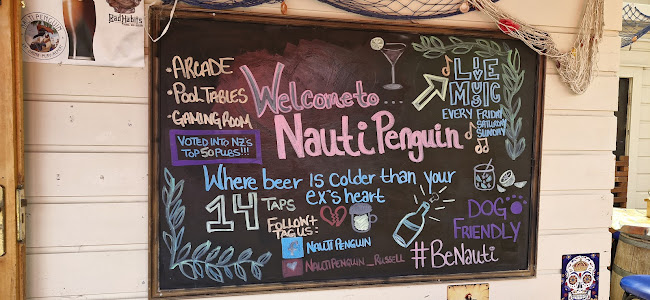 BadHabits
• ARCADE
• POOL TABLES
• GAMING ROOM
VOTED INTO NZ'S
TOP 50 PUBS!!!
Welcome to...
Nauti Penguin
LIVE
MUSIC
EVERY FRIDAY
SATURDAY
SUNDAY
Where beer is colder than your
ex's heart
14 TAPS
FOLLOW +
TAG US:
NAUTI PENGUIN
NAUTIPENGUIN_RUSSELL
DOG
FRIENDLY
#BeNauti